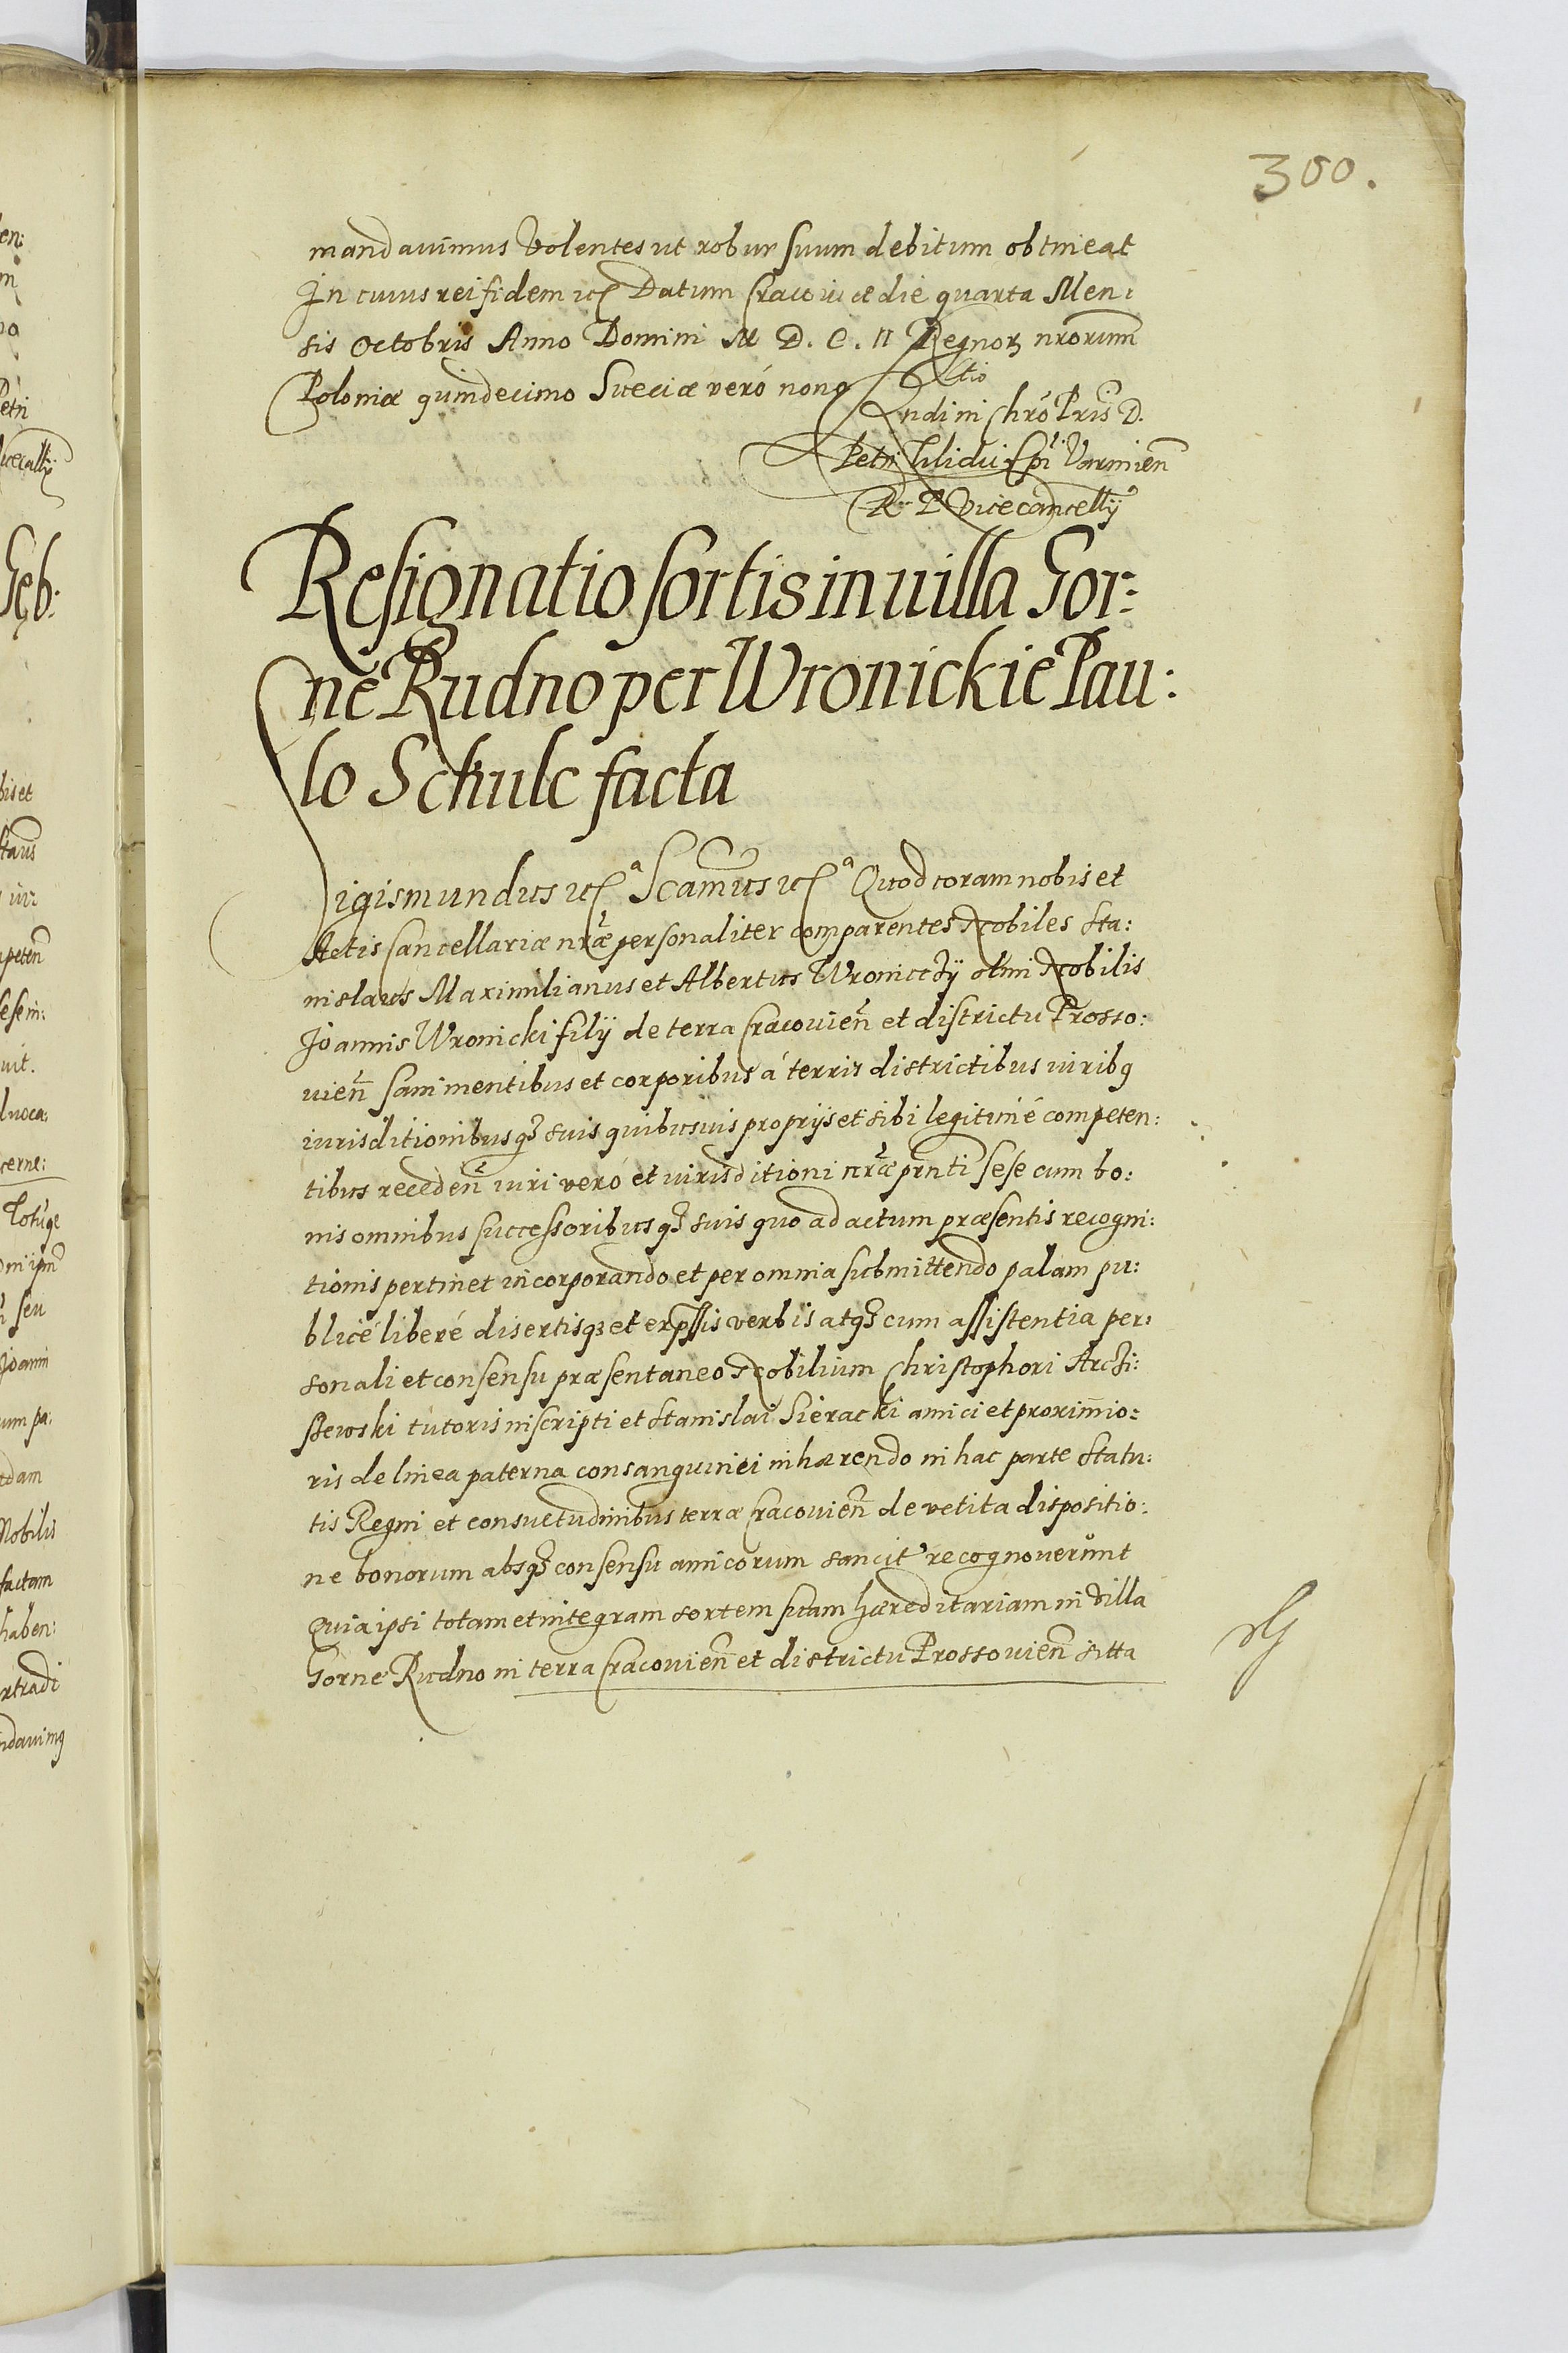 300.
mandavimus Volentes ut robur suum debitum obtineat
In cuius rei fidem etc Datum Cracoviæ die quarta Men:
sis Octobris Anno Domini M D. C. II Regnorz nrorum
Poloniæ quindecimo Sueciæ veró nono
Rndi in Chró Pris D.
Petri Tilicki Epi Varmien
R. P. Vicecancellÿ
Resignatio sortis in uilla Gor:
ne Rudno per Wronickie Pau:
lo Schulc facta
Sigismundus etc a Scamus etc a Quod coram nobis et
Actis Cancellariæ nræ personaliter comparentes Nobiles Sta:
nislaus Maximilianus et Albertus Wroniccÿ olim Nobilis
Joannis Wronicki filÿ de terra Cracovien et districtu Prosso:
uien sani mentibus et corporibus á terris districtibus iuribq
iurisditionibusqz suis quibusuis proprijs et sibi legitimé competen:
tibus receden iuri veró et iurisditioni nræ prnti sese cum bo:
nis omnibus successoribusqz suis quo ad actum præsentis recogni:
tionis pertinet incorporando et per omnia submittendo palam pu:
blicé liberé disertisqz et expssis verbis atqz cum assistentia per:
sonali et consensu præsentaneo Nobilium Christophori Arczi:
szewski tutoris inscripti et Stanislai Sieracki amici et proximio:
ris de linea paterna consanguinei inhærendo in hac parte Statu:
tis Regni et consuetudinibus terræ Cracovien de vetita dispositio:
ne bonorum absqz consensu amicorum sancit' recognouerunt
Quia ipsi totam et integram sortem suam hæreditariam in Villa
Gorne Rudno in terra Cracovien et districtu Prossouien sitta